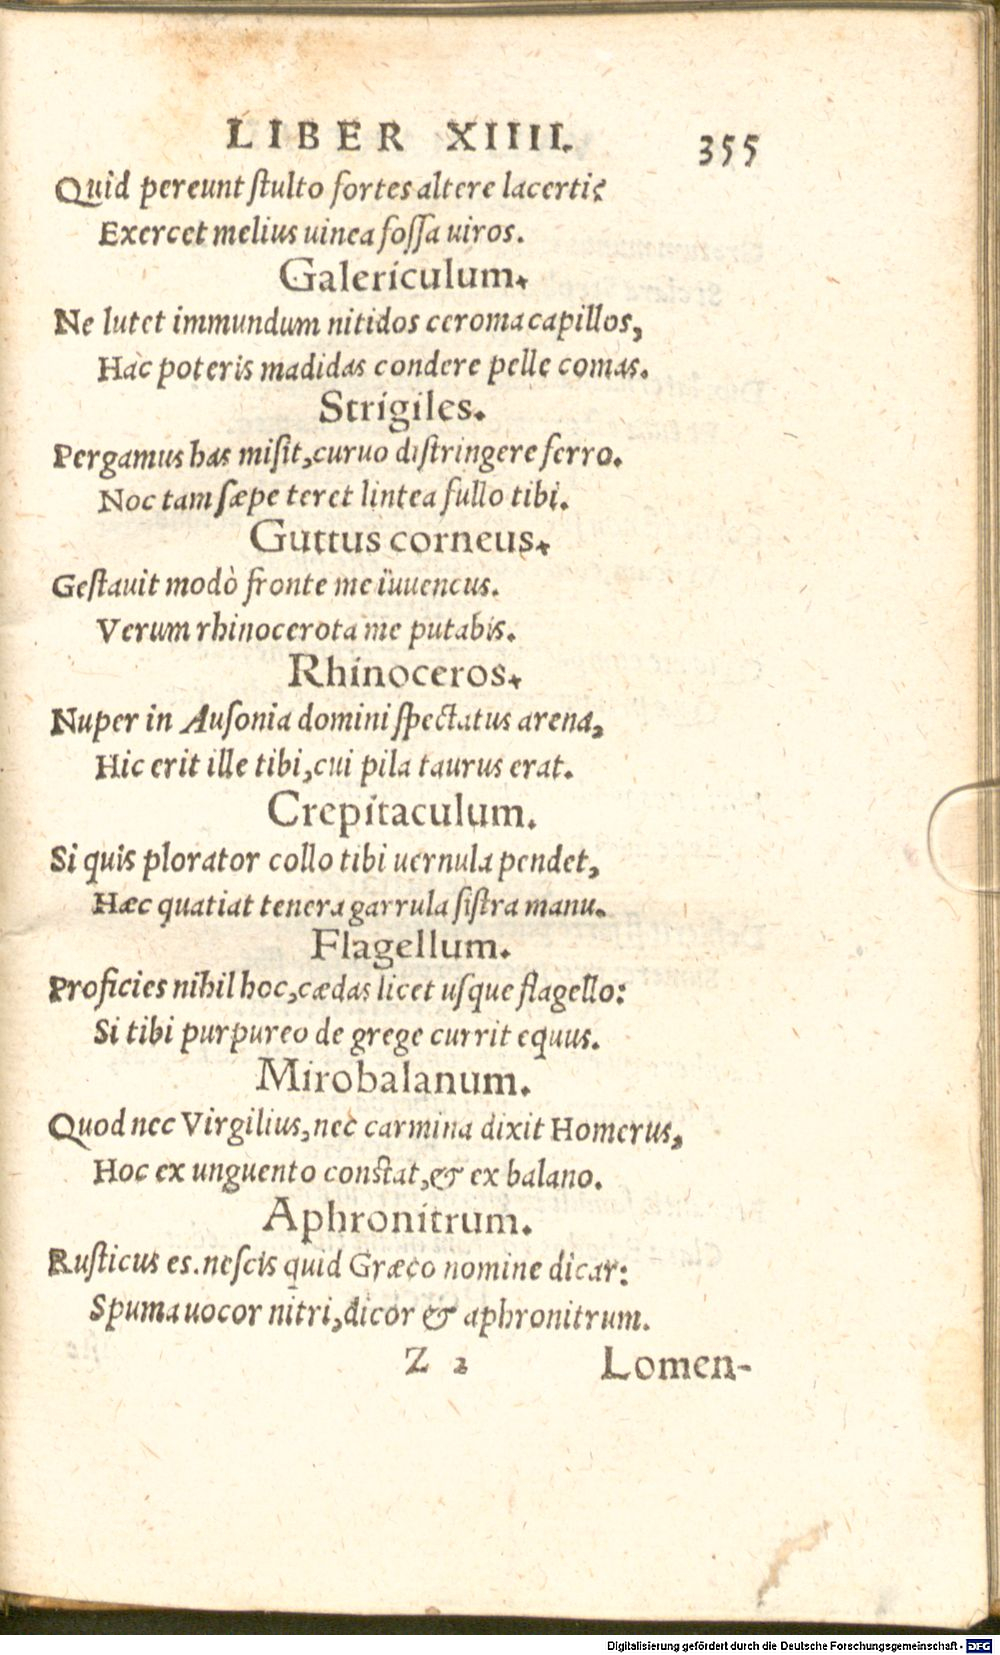 LIBER XIIII.
355
Quid pereunt stulto fortes altere lacerti?
Exercet melius uinea fossa uiros.
Galericulum.
Ne lutet immundum nitidos ceroma capillos,
Hac poteris madidas condere pelle comas.
Strigiles.
Pergamus has misit, curuo distringere ferro.
Noc tam sæpe teret lintea fullo tibi.
Guttus corneus.
Gestauit modò fronte me iuuencus.
Verum rhinocerota me putabis.
Rhinoceros.
Nuper in Ausonia domini spectatus arena,
Hic erit ille tibi, cui pila taurus erat.
Crepitaculum.
Si quis plorator collo tibi uernula pendet,
Hæc quatiat tenera garrula sistra manu.
Flagellum.
Proficies nihil hoc, cædas licet usque flagello:
Si tibi purpureo de grege currit equus.
Mirobalanum.
Quod nec Virgilius, nec carmina dixit Homerus,
Hoc ex unguento constat, & ex balano.
Aphronitrum.
Rusticus es. nescis quid Græco nomine dicar:
Spuma uocor nitri, dicor & aphronitrum.
Z 2
Lomen-
Digitalisierung gefördert durch die Deutsche Forschungsgemeinschaft - DFG